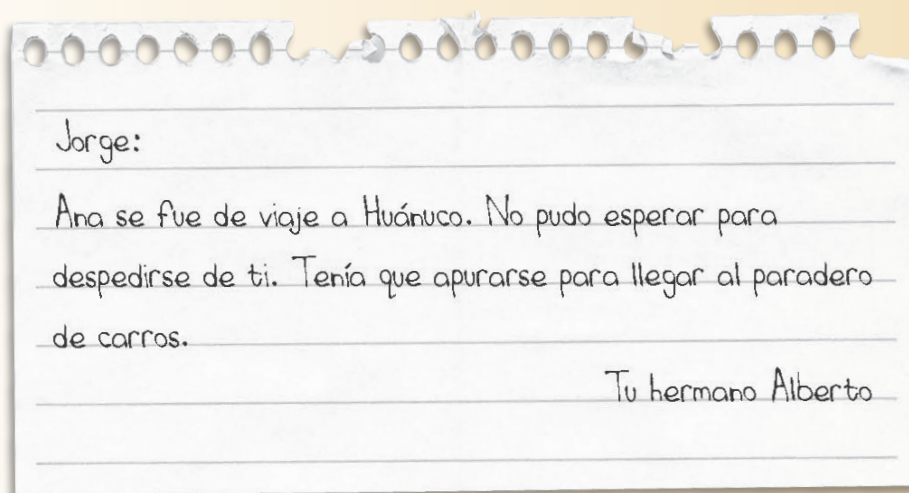 Jorge:
Ana se fue de viaje a Huánuco. No pudo esperar para
despedirse de ti. Tenía que apurarse para llegar al paradero
de carros.
Tu hermano Alberto